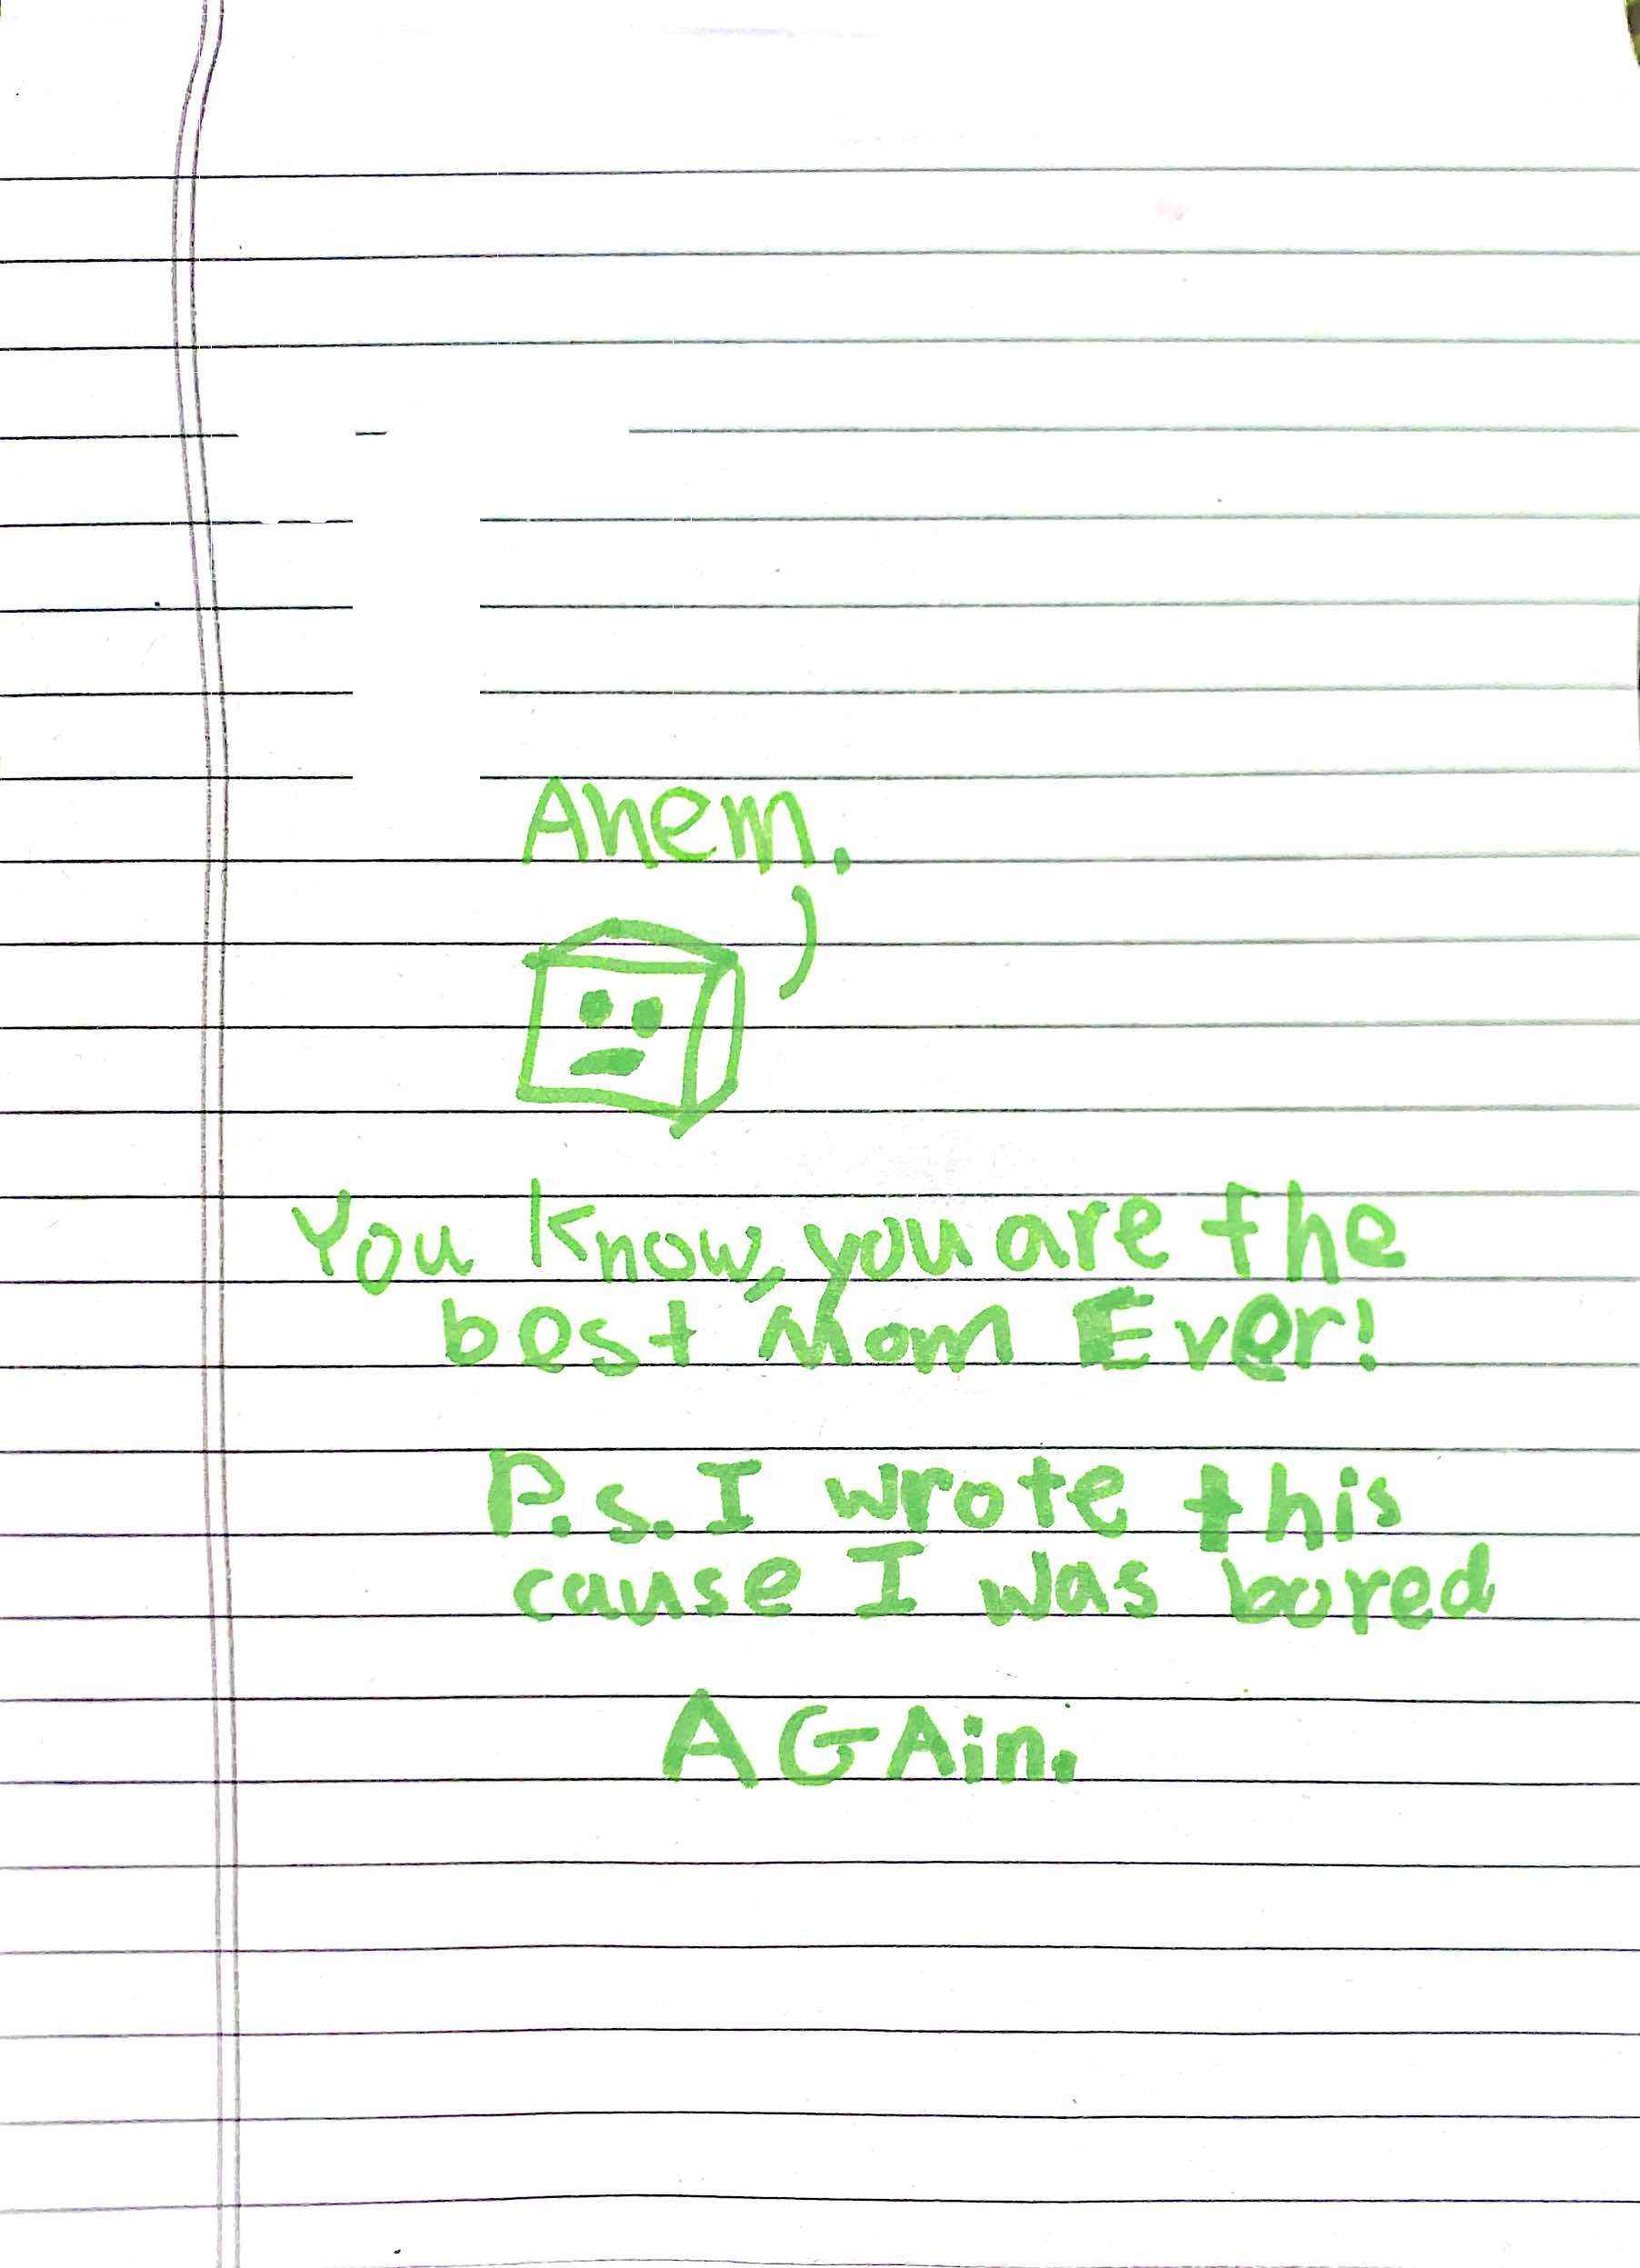 Ahem.
You know, you are the
best Mom Ever!
P.s. I wrote this
cause I was bored
AGAin.